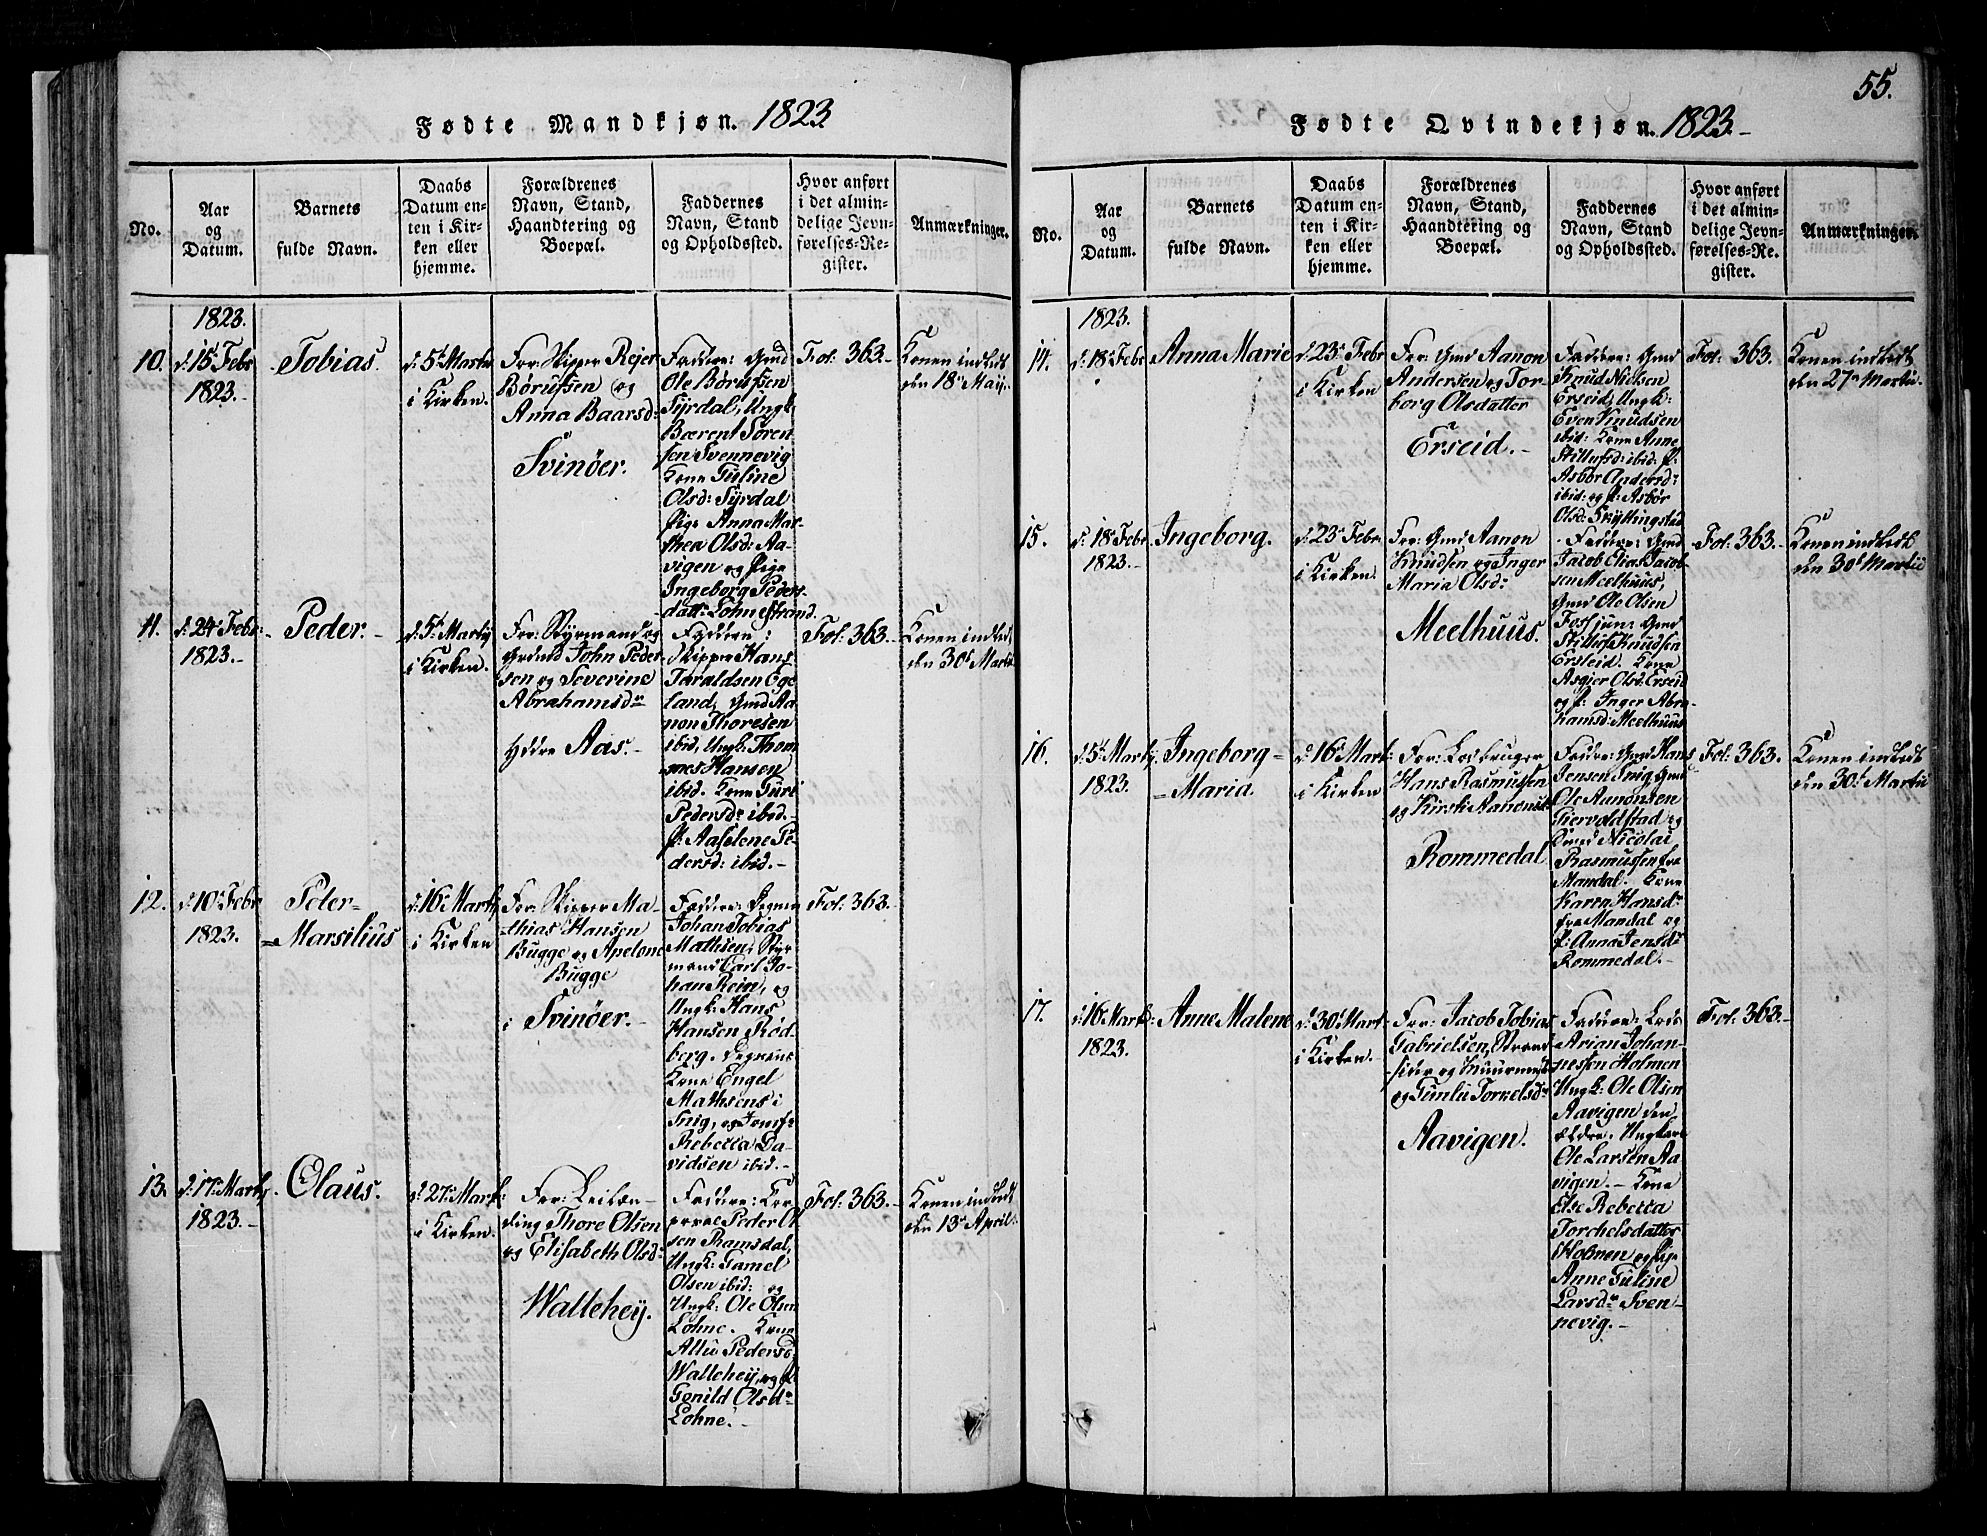 Fødte Mandkjøn. 1823
No.
Aar
og
Datum.
Barnets
fulde Navn.
Daabs
Datum en-
ten i Kir-
ken eller
hjemme.
Forældrenes
Navn, Stand,
Haandtering og
Boepæl.
Faddernes
Navn, Stand
og Opholdssted.
Hvor anført
i det almin-
delige Jevn-
førelses-Re-
gister.
Anmærkninger.
1823.
10.
d: 15 Febr
1823.-
Tobias.
d: 5t Martii
i Kirken.
For: Skipper Rejer
Børufsen og
Anna Baarsd:
Svinöer.
Faddere: Gmd
Ole Børufsen
Syrdal, Ungk:
Bærent Søren
sen Svennevig
Kone Guline
Olsd: Syrdal
Pige Anna Mar-
thea Olsd: Aa-
vigen og Pige
Ingeborg Peders-
datt: Lohnestrand.
Fol: 363.-
Konen indledt
den 18de Maij.
11.
d: 24 Febr:
1823.-
Peder.-
d: 5t Martij
i Kirken.
For: Styrmand og
John Peder
sen og Severine
Abrahamsdr
Yddre Aas.-
Faddere:
Skipper Hans
Taraldsen Ege
land, Gmd Aa
non Thoresen
ibid, Ungk: Thom
mes Hansen
ibid. Kone Guri
Pedersdr ibid.-
P: Aaselene Pe-
dersd: ibid.-
Fol: 363.-
Konen indledt
den 30t Martii
12.
d: 10 Febr
1823.
Peder=
=Marsilius
d: 16 Martij
i Kirken
For: Skipper Ma-
thias Hansen
Bugge og Apelone
Bugge
i Svinöer.-
Faddere: Degnen
Johan Tobias
Mathsen, Styr
mand Carl Jo-
han Rein, og
Ungk: Hans
Hansen Röd
berg. Degnens
Kone Engel
Mathsens i
Snig, og Jomfr
Rebecca Da-
vidsen ibid.-
Fol: 363.
13.
d: 17 Martij
1823.-
Olaus.
d: 27 Mart:
i Kirken.
For: Leilæn-
ding Thore Olsen
og Elisabeth Olsd:
Wallehey.
Faddere: Cor-
poral Peder Ol
sen Ramsdal,
Ungk: Gamel
Olsen ibid: og
Ungk: Ole Olsen
Lohne. Kone
Pedersd:
Wallehey, og P:
Gonild Olsdr
Lohne.-
Fol: 363.-
Konen indledt
den 13 April.
55.
Fødte Qvindekjøn. 1823.-
No.
Aar
og
Datum.
Barnets
fulde Navn.
Daabs
Datum en-
ten i Kir-
ken eller
hjemme.
Forældrenes
Navn, Stand,
Haandtering og
Boepæl.
Faddernes
Navn, Stand
og Opholdssted.
Hvor anført
i det almin-
delige Jevn-
førelses-Re-
gister.
Anmærkninger.
1823.
14.
d: 18 Febr
Anna Marie
d: 23 Febr
i Kirken
For: Gmd Aanon
Andersen og Tor-
borg Olsdatter
Erseid.-
Faddere: Gmd
Knud Nielsen
Erseid, Ungk:
Even Knudsen
ibid: Kone Anne
ibid: P:
Asbör Andersd:
ibid: og P: Asbör
Olsd: Skyllingstad
Fol: 363.
Konen indledt
den 27 Martii.
15.
d: 18 Febr.
1823.-
Ingeborg.
d: 23 Febr.
i Kirken.
For: Gmd Aanon
Knudsen og Inger
Maria Olsdr
Meelhuus.
Faddere: Gmd
Jacob Elias Jacob-
sen Meelhuus,
Gmd Ole Olsen
Gmd
Knudsen
Ersleid. Kone
Asgier Olsd: Erseid
og P: Inger Abra-
hamsd: Meelhuus
Fol: 363.-
Konen indledt
den 30t Martii
16.
d: 5t Martij.
1823.
Ingeborg=
=Maria.
d: 16 Mart:
i Kirken
For: Lodbruger
Hans Rasmussen
og Kirsti Aanensd:
Rommedal
Faddre: Gmd Hans
Jensen Snig, Gmd
Ole Aanonsen
og
Nicolai
Rasmussen fra
Mandal. Kone
Karen Hansdr
fra Mandal og
P: Anna Jensdr
Rommedal.-
Fol: 363.
Konen indledt
den 30t Martii
17.
d: 16 Mart:
1823.
Anne Malene
d: 30 Mart
i Kirken.-
For: Jacob Tobias
Gabrielsen, Strand
sider og Muurmester
og Gunlu Torkelsdr
Aavigen.
Faddere: Lods
Arian Johan-
nessen Holmen
Ungk: Ole Olsen
Aavigen den
ældre. Ungkarl
Ole Larsen Aa-
vigen.- Kone
Else Rebecca
Torchelsdatter
Holmen og Pige
Anne Guline
Larsdr Sven-
nevig.-
Fol: 363.-